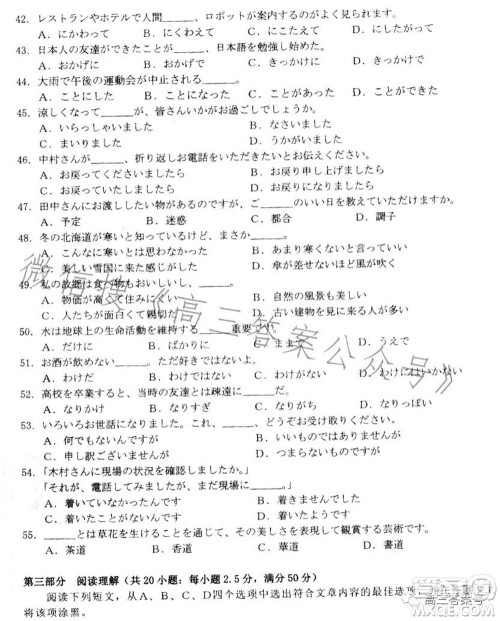 42. レストランやホテルで人間______、ロボットが案内するのがよく見られます。
A. にかわって B. にくわえて C. にこたえて D. にたいして
43. 日本人の友達ができたことが______、日本語を勉強し始めた。
A. おかげに B. おかげで C. きっかけに D. きっかけで
44. 大雨で午後の運動会が中止される______。
A. ことにした B. ことになった C. ようにした D. ようになった
45. 涼しくなって______が、皆さんいかがお過ごしでしょうか。
A. いらっしゃいました B. なさいました
C. まいりました D. うかがいました
46. 中村さんが______、折り返しお電話をいただきたいとお伝えください。
A. お戻ってくださいましたら B. お戻り申し上げましたら
C. お戻りしましたら D. お戻りになりましたら
47. 田中さんにお渡ししたい物があるのですが、ご______のいい日を教えていただけますか。
A. 予定 B. 迷惑 C. 都合 D. 調子
48. 冬の北海道が寒いと知っているけど、______。
A. こんなに寒いとは思わなかった B. あまり寒くないと思う
C. 美しい雪国に来た感じがした D. 傘が差せないほど風が吹く
49. 私の故郷は食べ物もおいしいし、______。
A. 物価が高くて困る B. 自然の風景も美しい
C. 人も面白くて親切だ D. 古い建物を見に来る人が多い
50. 水は地球上の生命活動を維持する______重要です。
A. ところで B. ほどに D. うえで
51. お酒が飲めない______。ただ好きではないよ。
A. わけだ B. わけではない C. はずだ D. はずではない
52. 高校を卒業すると、当時の友達とは疎遠に______だ。
A. なりかけ B. なりすぎ C. なりがち D. なりっぽい
53. いろいろお世話になりました。これ、______が、どうぞお受け取りください。
A. 何でもないんです B. つまらないものです
C. 申し訳ございません D. たいへんなものです
54. 「木村さんに現場の状況を確認しましたか。」
「それが、電話してみましたが、まだ______。」
A. 着いていなかったんです B. 着いていないんです
C. 着きませんでした D. 着きましたよ
55. ______とは草花を生けることを通じて、その美しさを表現して観賞する芸術です。
A. 茶道 B. 書道 C. 香道 D. 華道
第三部分 阅读理解（共 20 小题：每小题 2.5 分，满分 50 分）
阅读下列短文，从A、B、C、D四个选项中选出符合文章内容的最佳选项，
将该项涂黑。
微信搜《高三答案公众号》
高三答案号